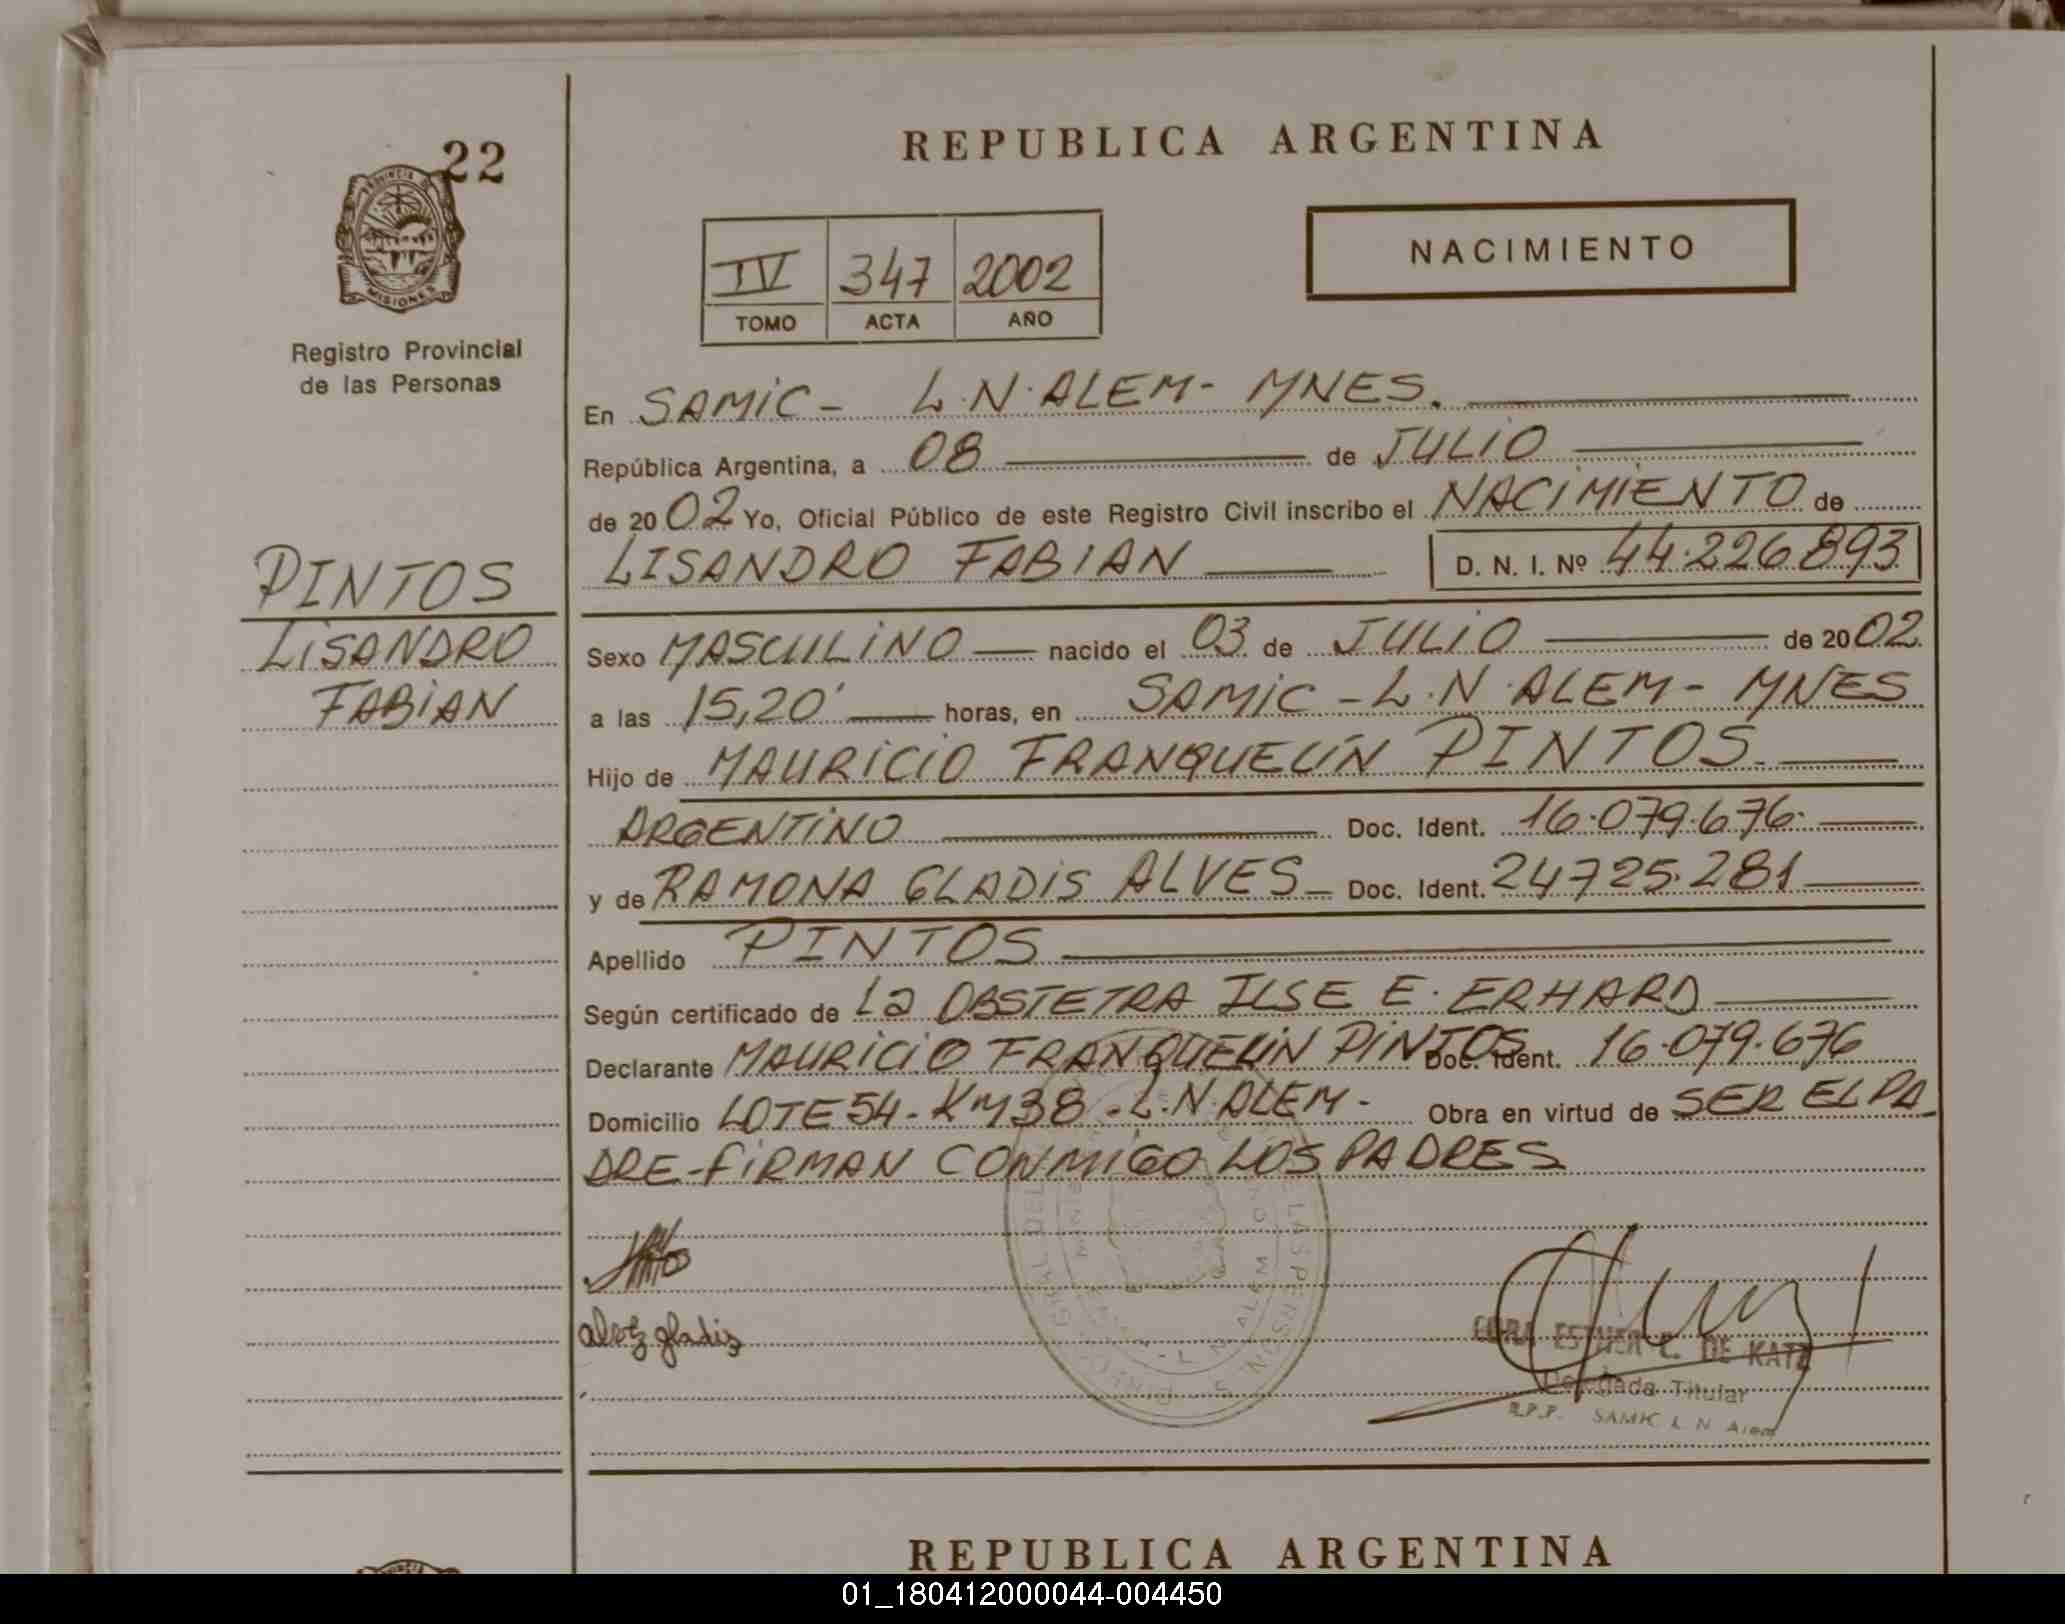 22
PROVINCIA DE
MISIONES
Registro Provincial
de las Personas
PINTOS
LISANDRO
FABIAN
REPUBLICA ARGENTINA
IV 347 2002
TOMO ACTA AÑO
NACIMIENTO
En SAMIC - L.N. ALEM - MNES.
República Argentina, a 08 de JULIO
de 2002 Yo, Oficial Público de este Registro Civil inscribo el NACIMIENTO de
LISANDRO FABIAN D. N. I. Nº 44.226.893
Sexo MASCULINO nacido el 03 de JULIO de 2002
a las 15,20' horas, en SAMIC - L.N. ALEM - MNES
Hijo de MAURICIO FRANQUELIN PINTOS
ARGENTINO Doc. Ident. 16.079.676
y de RAMONA GLADIS ALVES Doc. Ident. 24725.281
Apellido PINTOS
Según certificado de La OBSTETRA ILSE E. ERHARD
Declarante MAURICIO FRANQUELIN PINTOS Doc. Ident. 16.079.676
Domicilio LOTE 54 - Km 38 - L.N. ALEM - Obra en virtud de SER EL PA
DRE - FIRMAN CONMIGO LOS PADRES
gladis
ESTHER C. DE KATZ
Delegada Titular
R.P.P. SAMIC L N Alem
REPUBLICA ARGENTINA
01_180412000044-004450